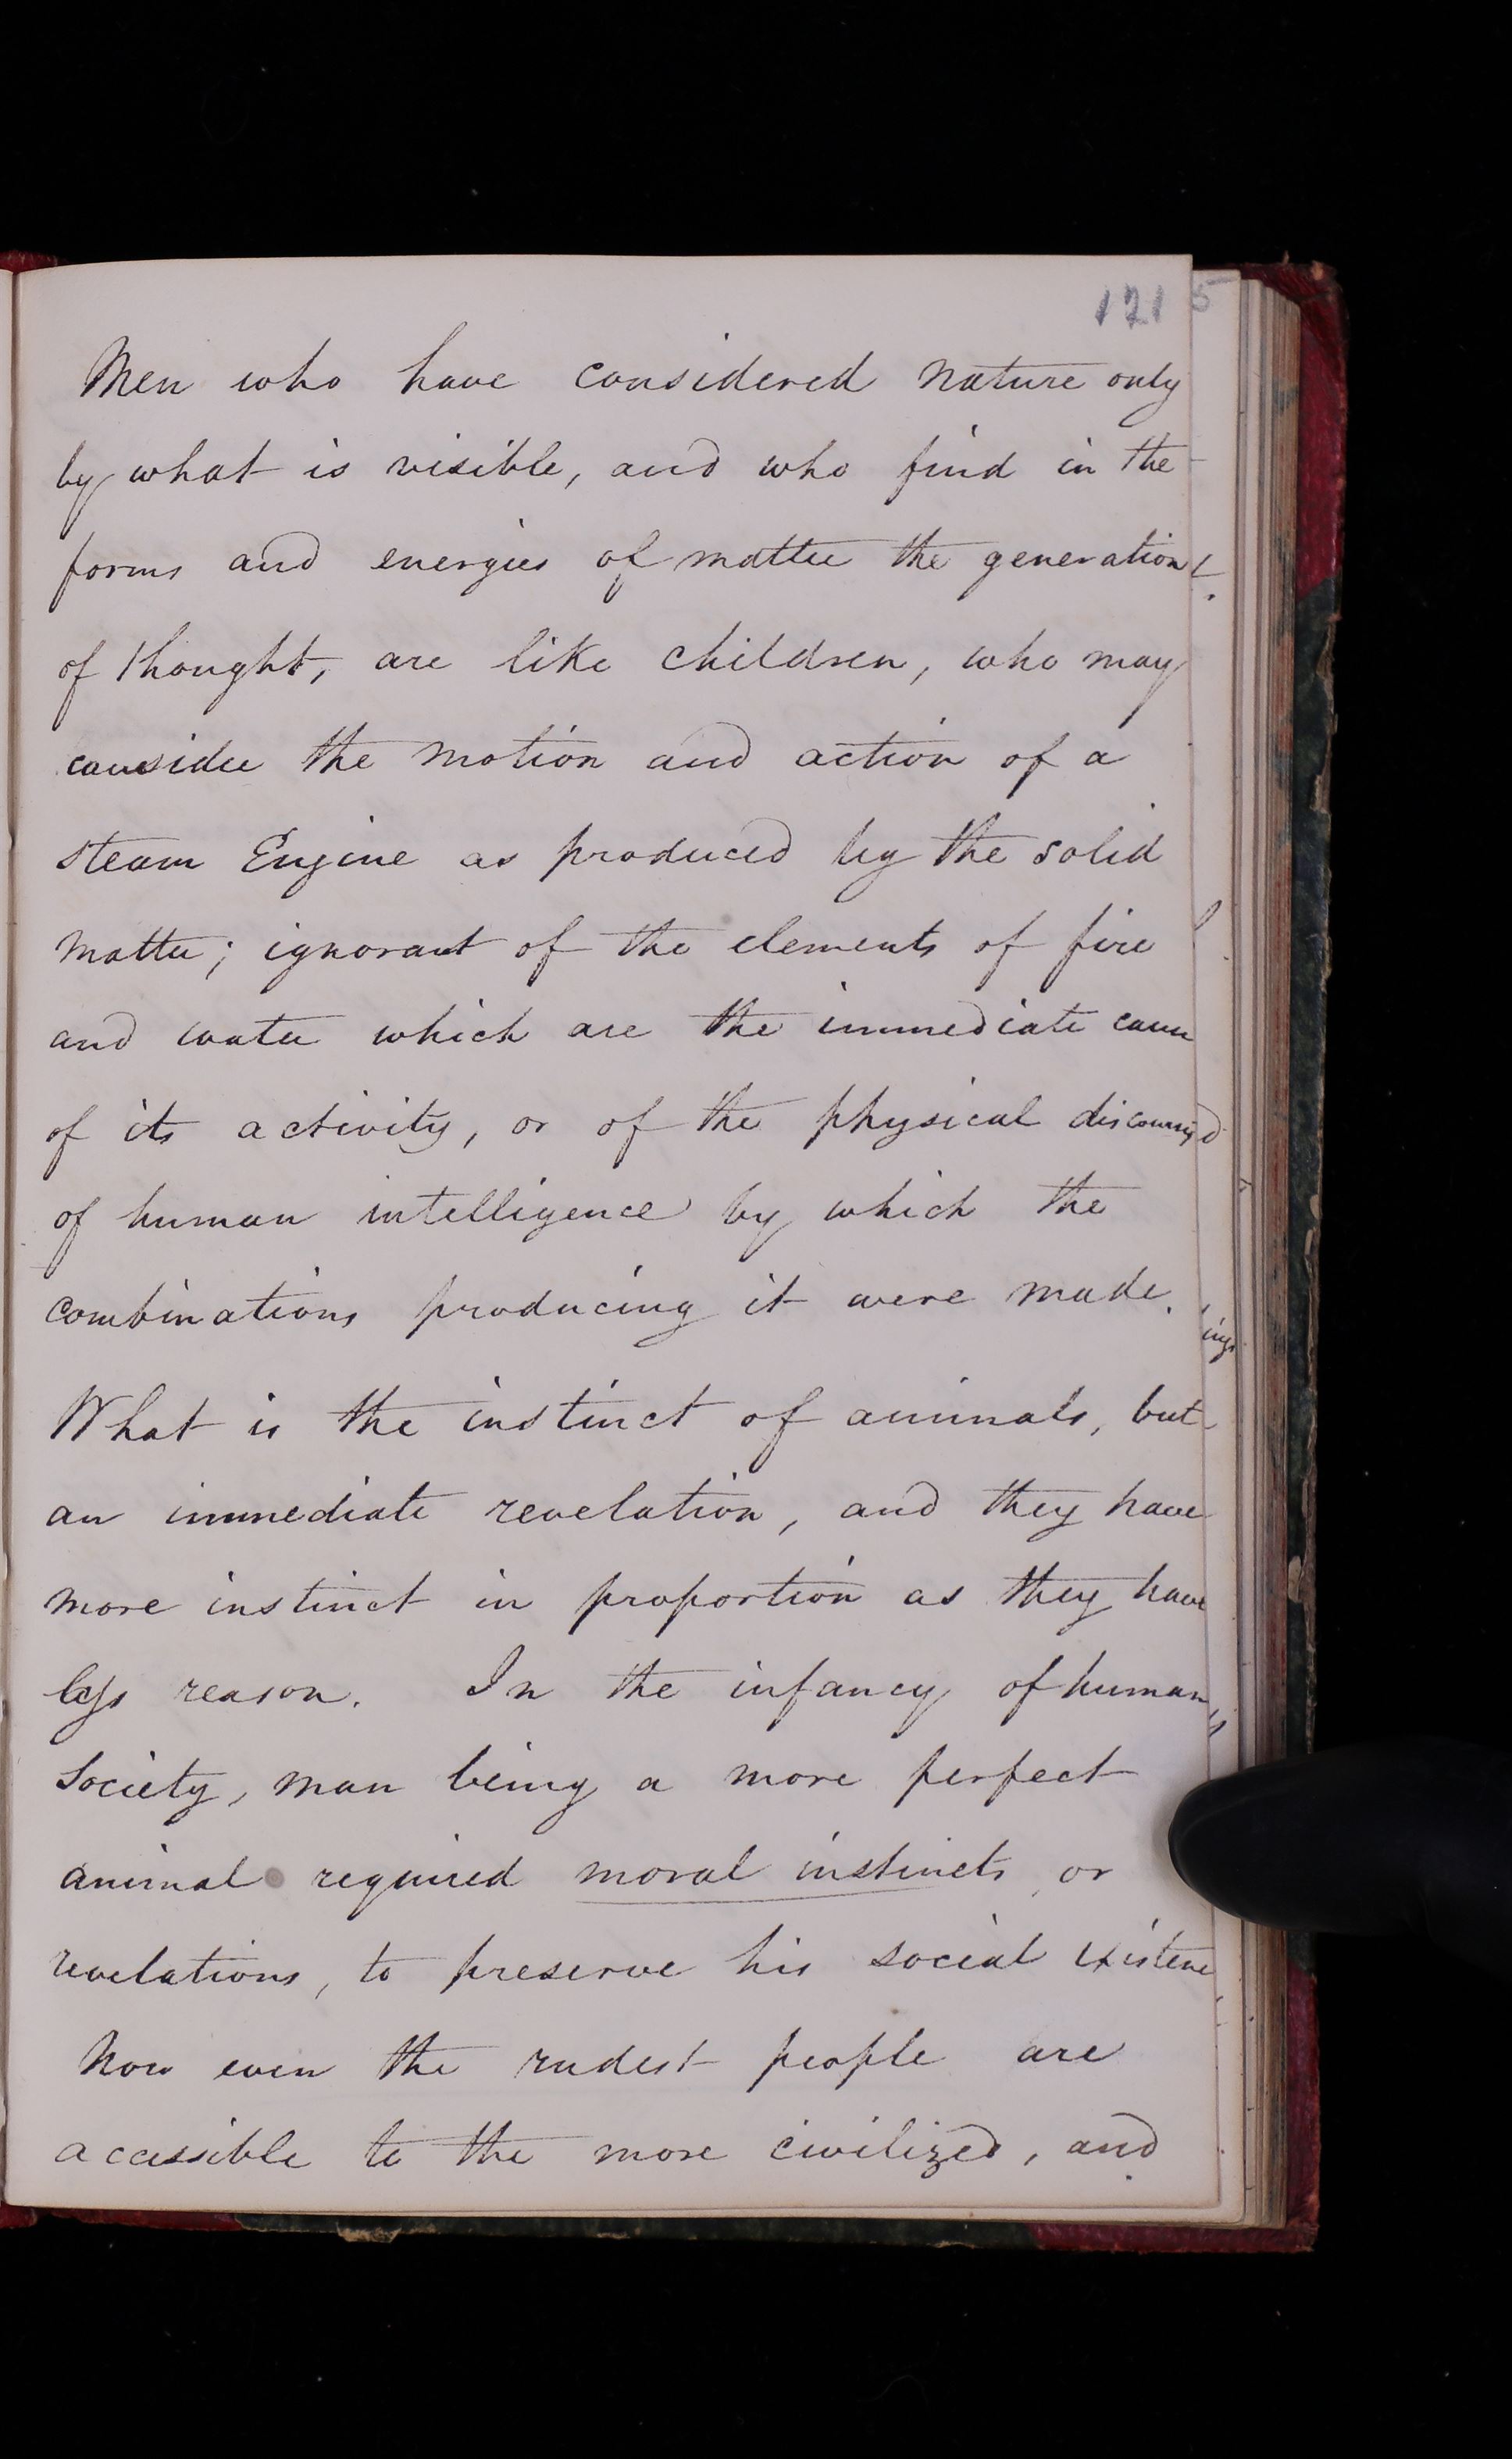 121
Men who have considered nature only
by what is visible, and who find in the
forms and energies of matter the generation
of thought, are like children, who may
consider the motion and action of a
steam Engine as produced by the solid
matter; ignorant of the elements of fire
and water which are the immediate cause
of its activity, or of the physical
of human intelligence by which the
combinations producing it were made.
What is the instinct of animals, but
an immediate revelation, and they have
more instinct in proportion as they have
less reason. In the infancy of human
Society, man being a more perfect
animal required moral instincts or
revelations, to preserve his social existence
Now even the rudest people are
accessible to the more civilized, and